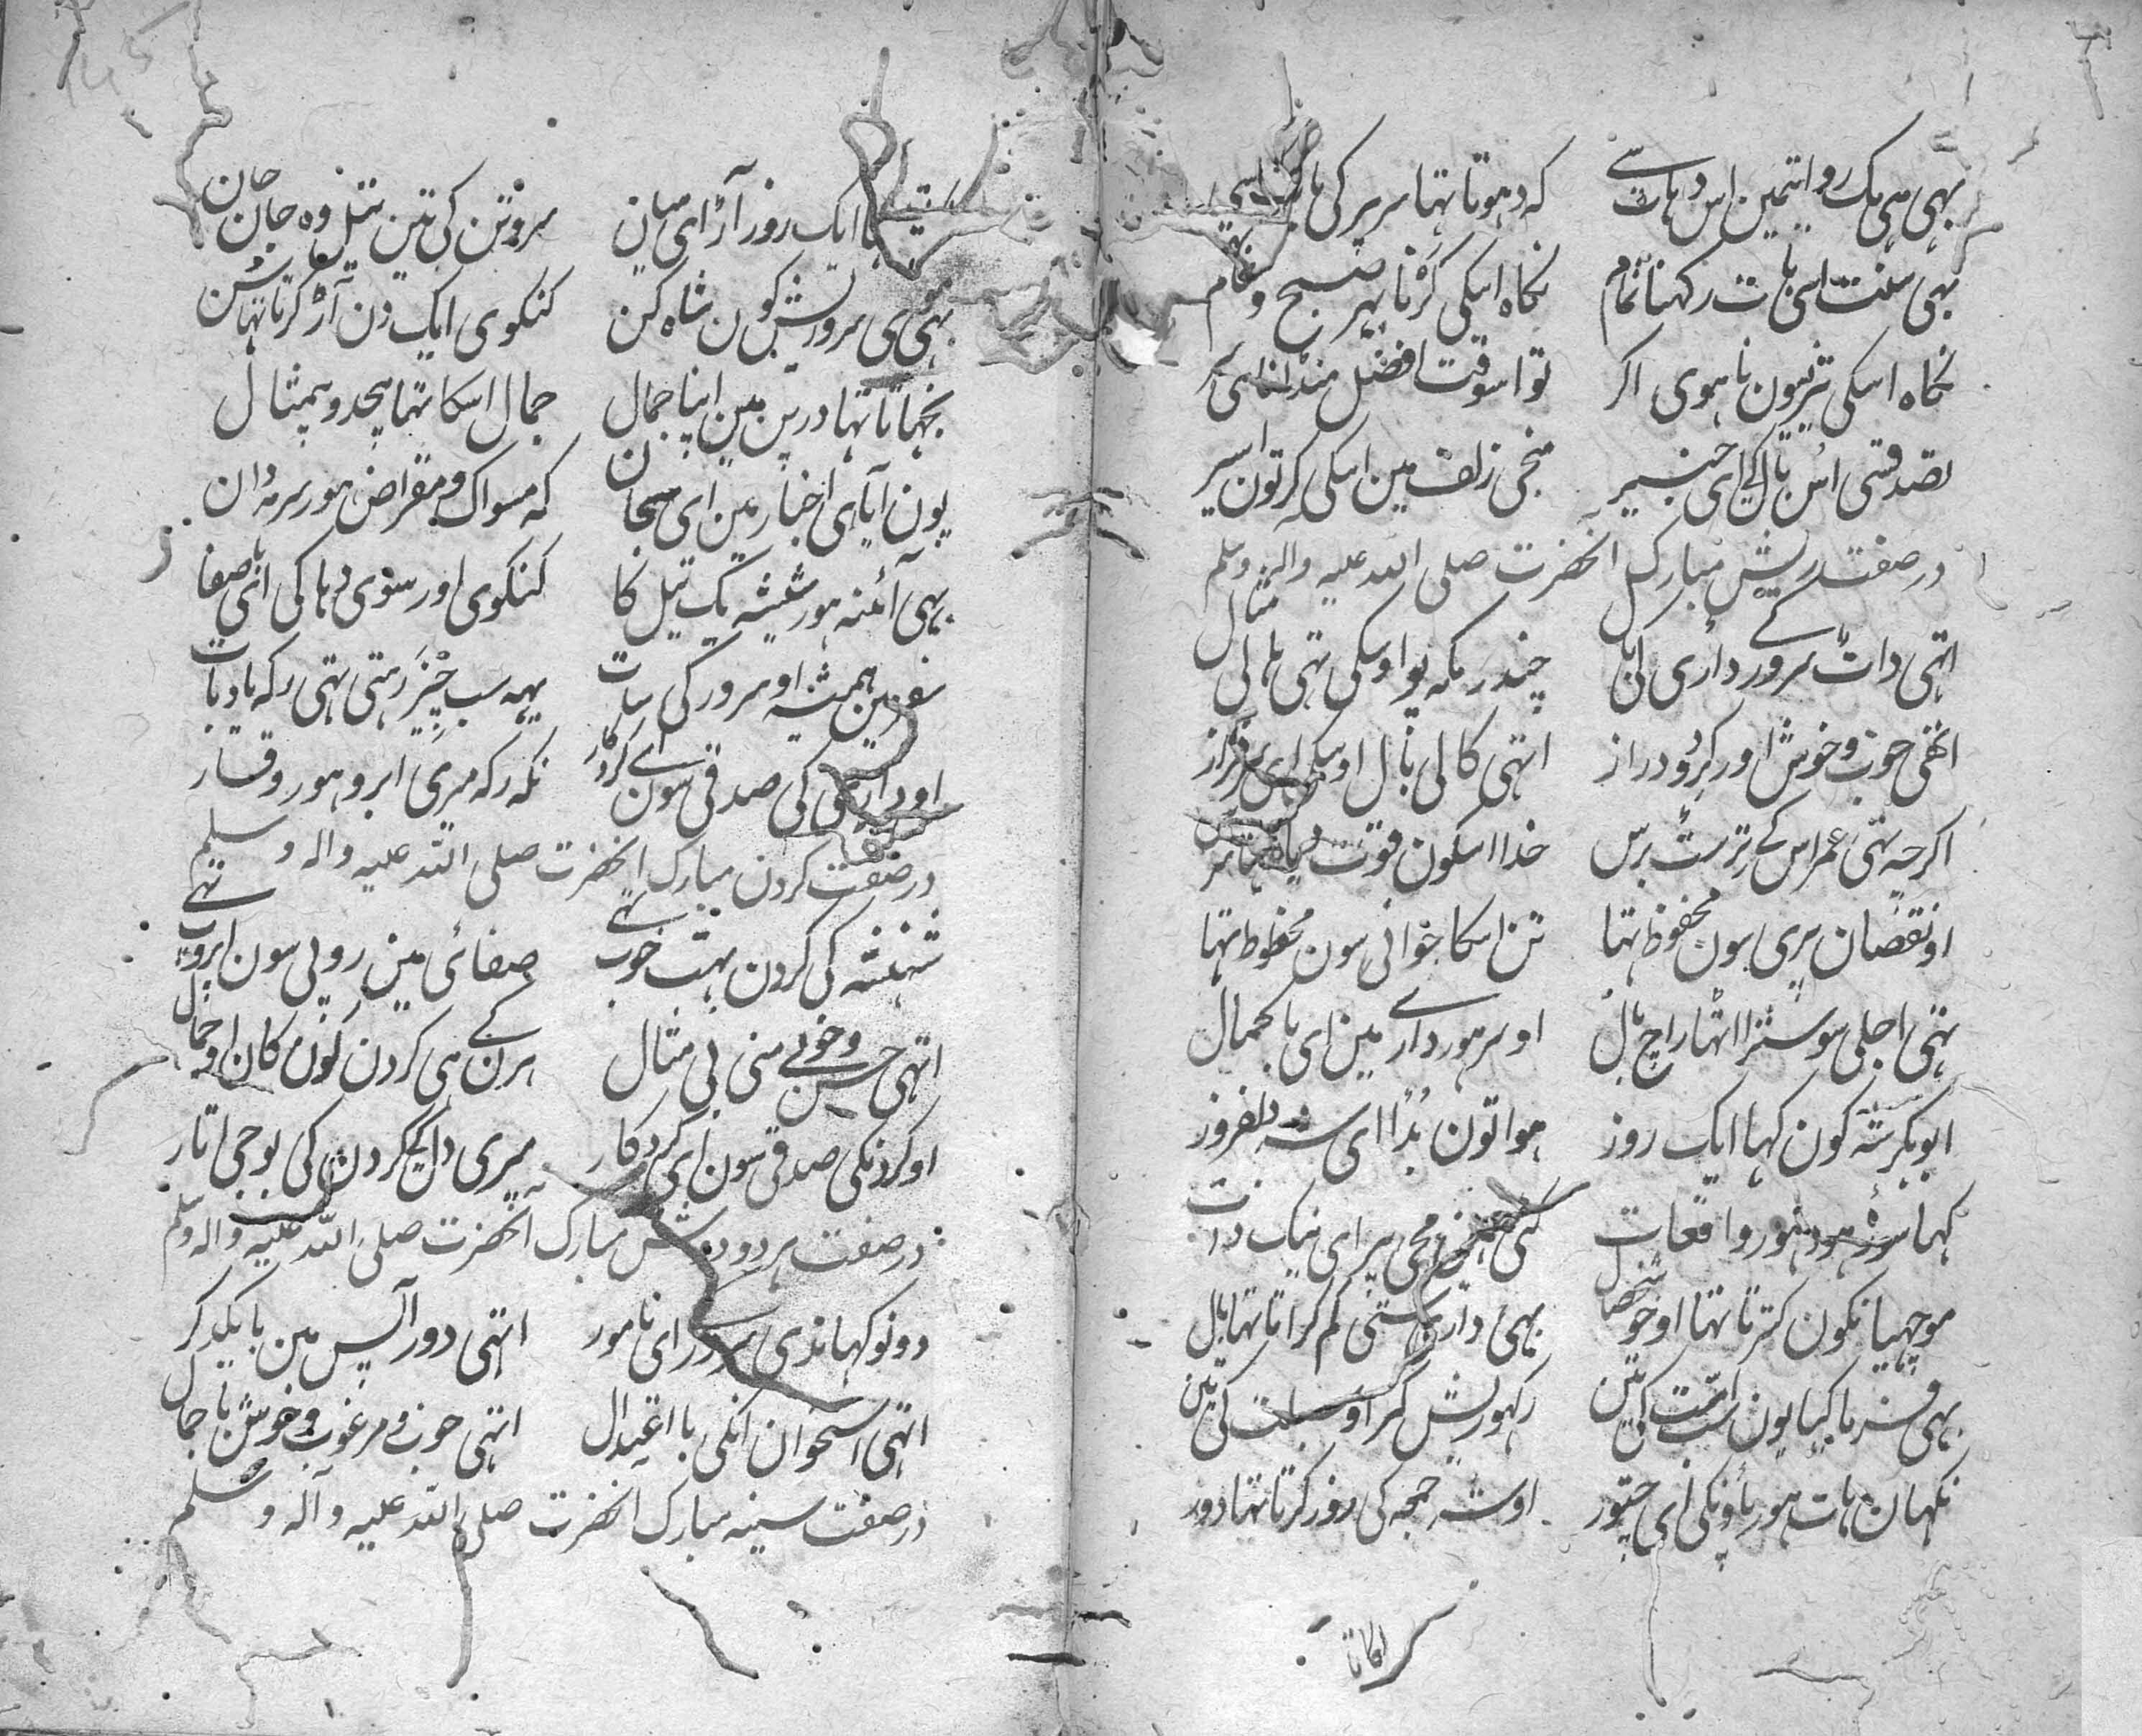 بہی ہی یک روایتمین اس دہات سے کہ دہوتا تہا سر بیر کی
بہی سنت اسی بات رکہنا تمام نگاہ اسکی کرنا بہر صبح و شام
نگاہ اسکی شرسون نا ہوی اگر تو اسوقت افضل منڈانا ای
تصدقتی اس بال کی ای خبیر منجی زلف مین اسکی کر تون اسیر
در صفت ریش مبارک آنحضرت صلی الله علیہ واله وسلم
اتہی دات سرور داری کے چندر مکہ پو اوسکی تہی ہالی مثال
اتہی خوب و خوش اور گرد و دراز اتہی کالی بال اوسکی ای سرفراز
اگرچہ تہی عمر اس کے ترست برس خدا اسکون قوت دیا تہا
او نقصان پیری سون محفوظ تہا تن اسکا جوانی سون محظوظ تہا
تہی اجلی سو ستر اٹہارا چ بال او سر ہور داری مین ای با کمال
ابوبکر شہ کون کہا ایک روز ہوا تون بڈا ای شہ دلفروز
کہا سورۂ ہود ہور واقعات کئی مجی پیر ای نیک ذات
موچہیانکون کترتا تہا او خوشخصال بہی داری ستی کم کراتا تہا بال
بہی فرما کیا یون امت کی تین رکہو ریش کتراو سبلت کی تین
نکہان ہات ہور پاونکی ای چتور اوشہ جمعہ کی روز کرتا تہا دور
لگاتا
ایک روز آڑ ای میان سر و تن کی تین تیل وہ جان جان
بہی سرور ریش کون شاہ کن کنگوی ایک دن آڑ کرتا تہا سن
نجہاتا تہا درپن مین اپنا جمال جمال اسکا تہا بیحد و بیمثال
یون آیا ہی اخبار مین ای میجان کہ مسواک و مقراض ہور سرمہ دان
بہی آئنہ ہور شیشہ یک تیل کا کنگوی اور سوئی دہاگی ای با صفا
سفر مین ہمیشہ او سرور کی سات یہہ سب چیز رہتی تہی رکہ یاد بات
او داری کی صدقی سون اے کردگار نکہ رکہ میری ابرو ہور وقار
در صفت کردن مبارک آنحضرت صلی الله علیہ واله وسلم
شہنشہ کی کردن بہت خوب تہی صفائی مین روپی سون
اتہی حسن و خوبی منی بی مثال ہرن کے ہی کردن کون کان او جمال
او کردنکی صدقی سون ای کردکار میری کردن کی بوجی اتار
در صفت ہر دو دوش مبارک آنحضرت صلی الله علیہ واله وسلم
دونو کہاندی سرور ای نامور اتہی دور آپس مین با یکدگر
اتہی استخوان انکی با اعتدال اتہی خوب و مرغوب و خوش با جمال
در صفت سینہ مبارک آنحضرت صلی الله علیہ واله وسلم